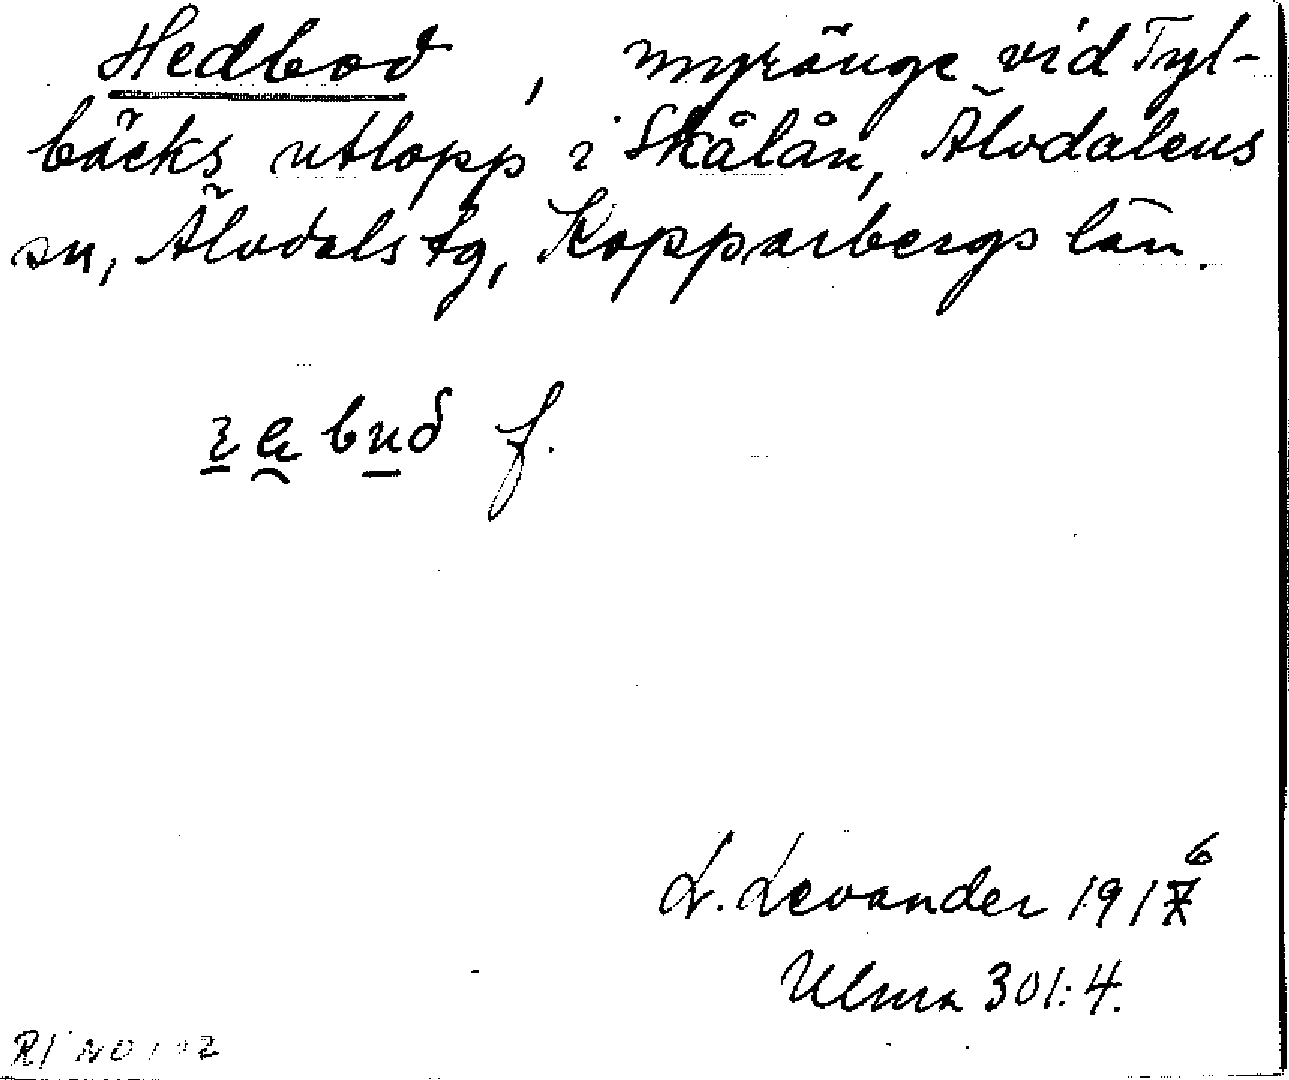 Hedbod, myränge vid Tyl-
bäcks utlopp i Skålån, Älvdalens
sn, Älvdals tg, Kopparbergs län.
buð f.
L. Levander 1916
Ulma 301:4.